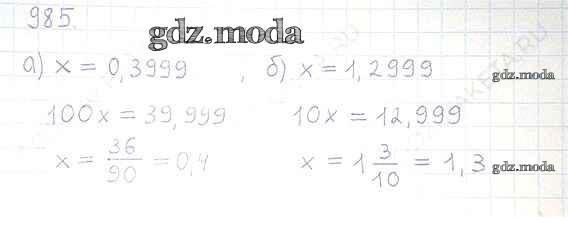 985.
gdz.moda
а) x = 0,3999 , б) x = 1,2999 gdz.moda
100x = 39,999 10x = 12,999
x = 36/90 = 0,4 x = 1 3/10 = 1,3 gdz.moda